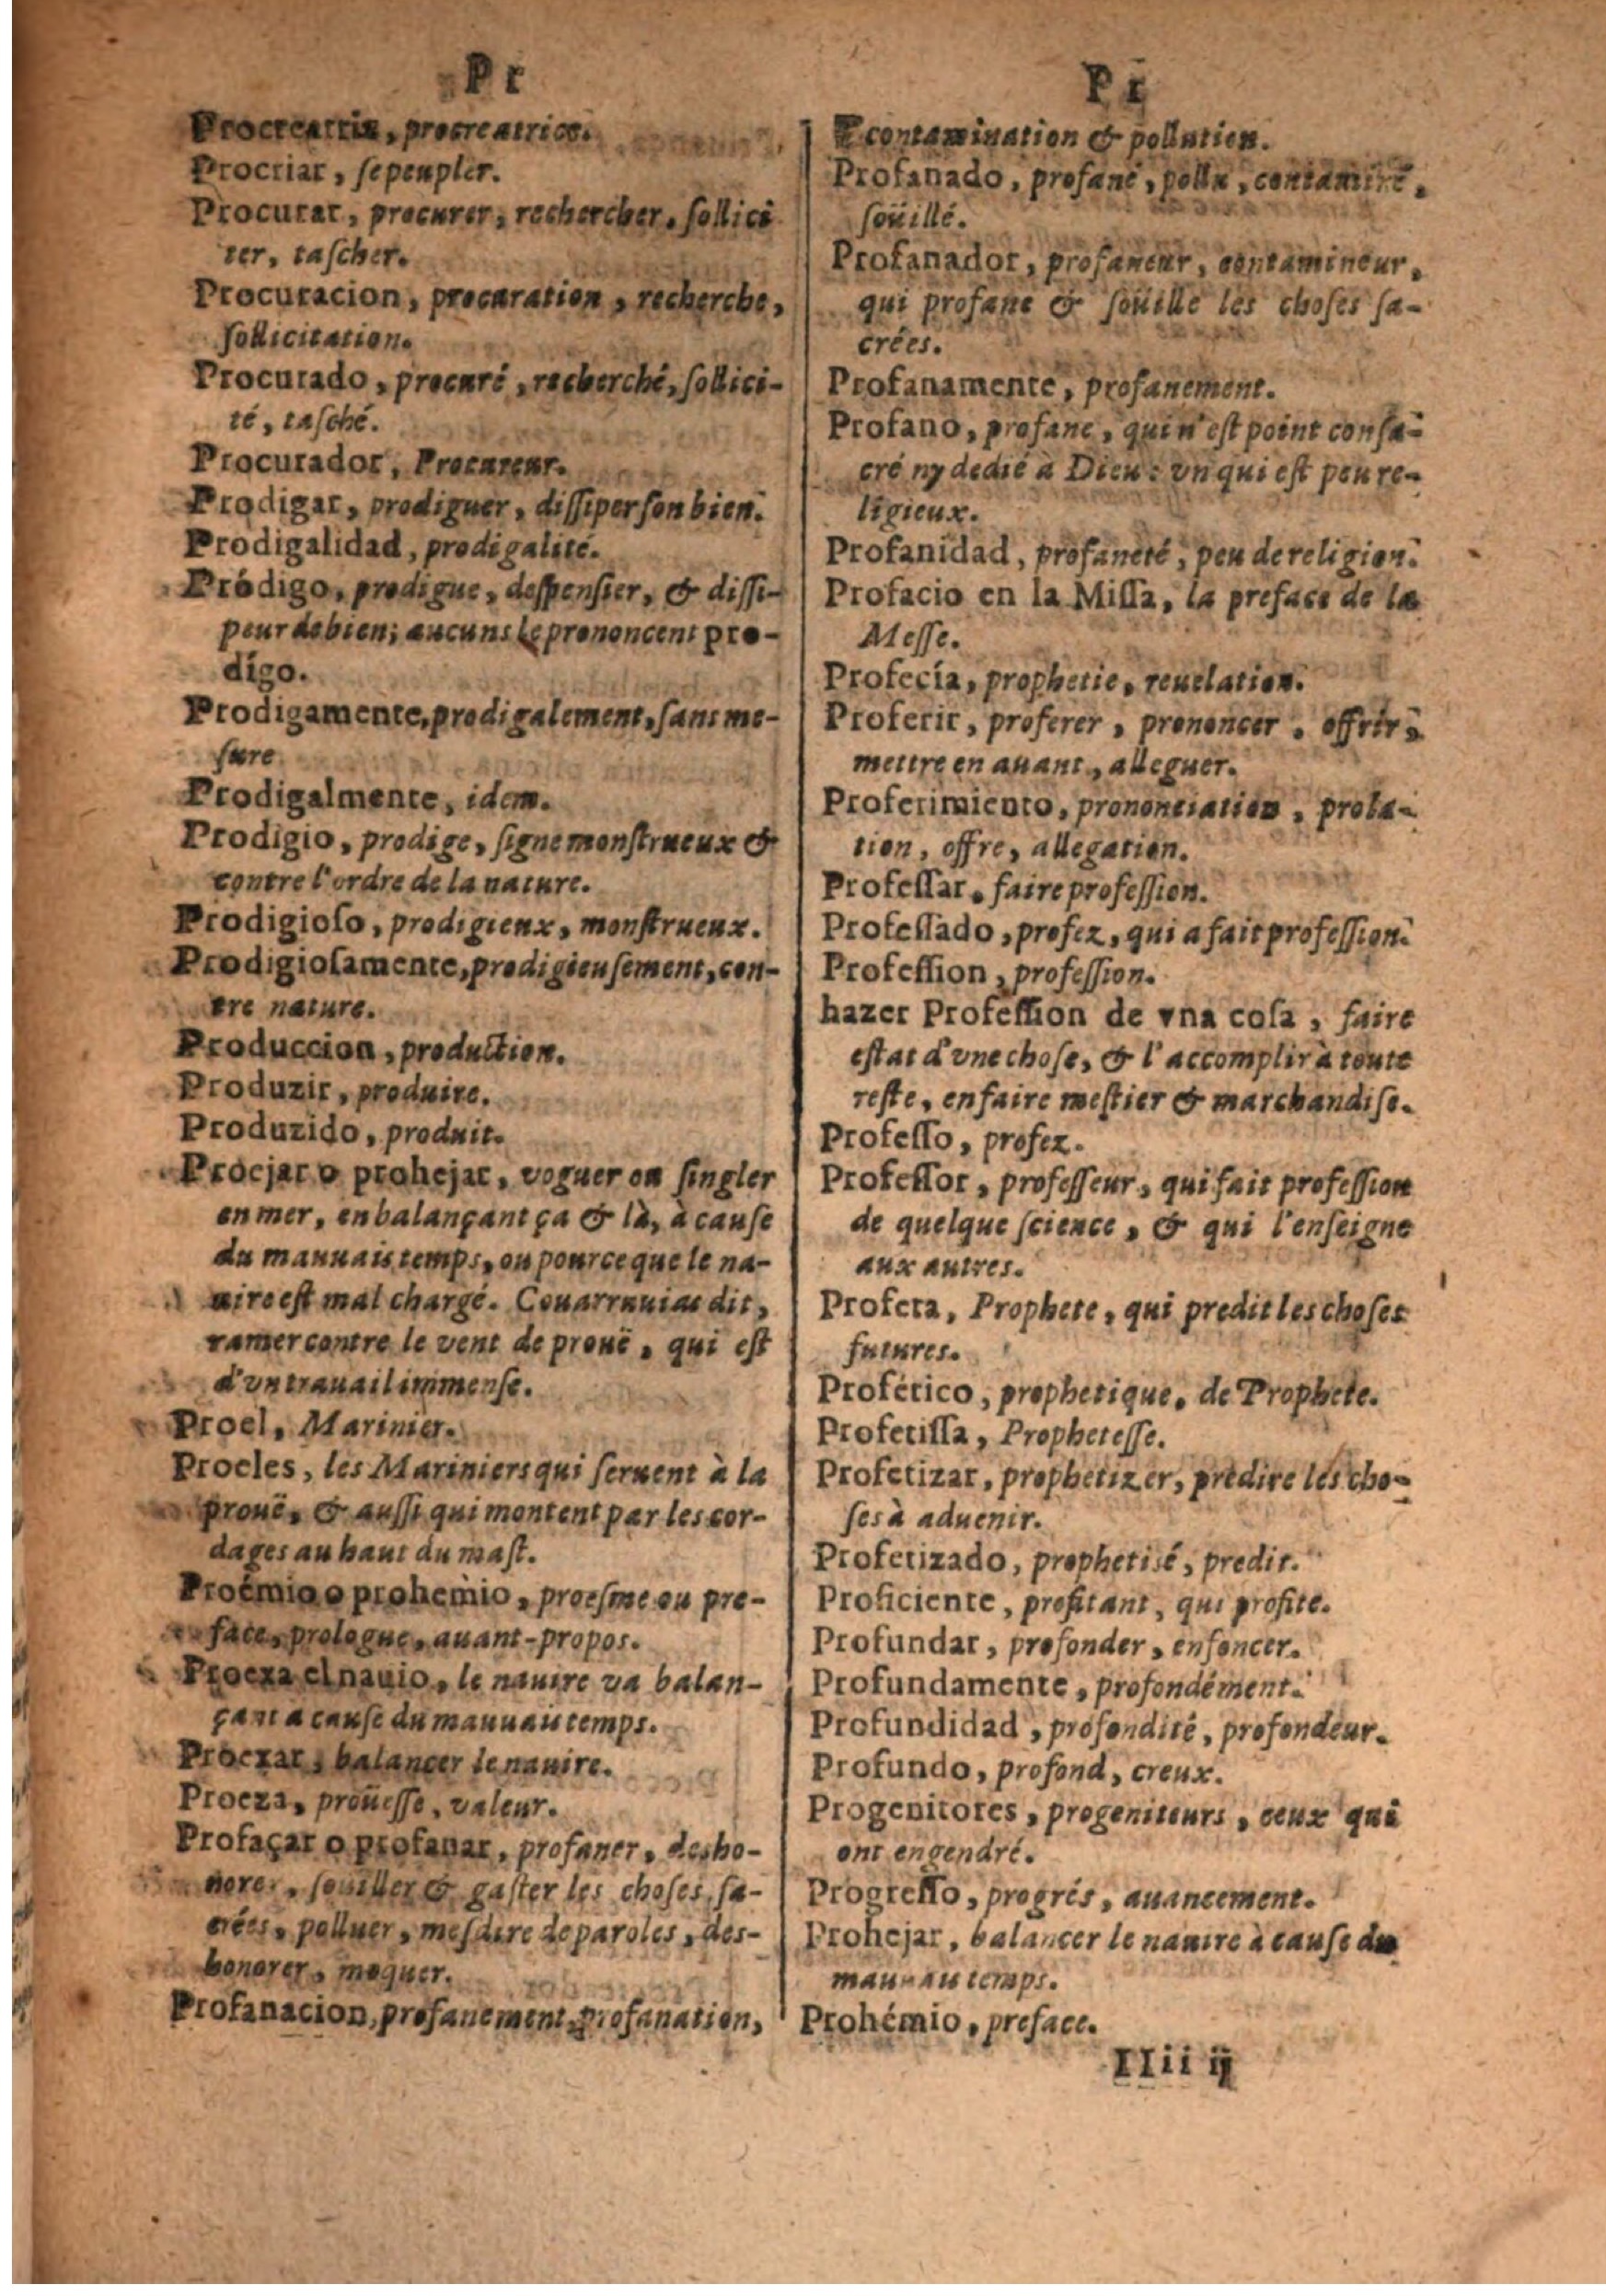 Pr
Procreatriz, procreatrice.
Procriar, ſe peupler.
Procurar, procurer, rechercher, ſollici
ter, taſcher.
Procuracion, procuration, recherche,
ſollicitation.
Procurado, procuré, recherché, ſollici-
té, taſché.
Procurador, Procureur.
Prodigar, prodiguer, diſſiper ſon bien.
Prodigalidad, prodigalité.
Pródigo, prodigue, deſpenſier, & diſſi-
peur de bien; aucuns le prononcent pro-
dígo.
Prodigamente, prodigalement, ſans me-
ſure
Prodigalmente, idem.
Prodigio, prodige, ſigne monſtrueux &
contre l'ordre de la nature.
Prodigioſo, prodigieux, monſtrueux.
Prodigioſamente, prodigieuſement, con-
tre nature.
Produccion, production.
Produzir, produire.
Produzido, produit.
Proejar o prohejar, voguer ou ſingler
en mer, en balançant ça & là, à cauſe
du mauuais temps, ou pource que le na-
uire eſt mal chargé. Couarruuias dit,
ramer contre le vent de prouë, qui eſt
d'vn trauail immenſe.
Proel, Marinier.
Proeles, les Mariniers qui ſeruent à la
prouë, & auſſi qui montent par les cor-
dages au haut du maſt.
Proémio o prohemio, proeſme ou pre-
face, prologue, auant-propos.
Proexa el nauio, le nauire va balan-
çant a cauſe du mauuais temps.
Proexar, balancer le nauire.
Proeza, proüeſſe, valeur.
Profaçar o profanar, profaner, desho-
norer, ſouiller & gaſter les choſes ſa-
crées, polluer, meſdire de paroles, des-
honorer, moquer.
Profanacion, profanement, profanation,
Pr
contamination & pollution.
Profanado, profané, pollu, contaminé,
ſoüillé.
Profanador, profaneur, contamineur,
qui profane & ſoüille les choſes ſa-
crées.
Profanamente, profanement.
Profano, profane, qui n'eſt point conſa-
cré ny dedié à Dieu: vn qui eſt peu re-
ligieux.
Profanidad, profaneté, peu de religion.
Profacio en la Miſſa, la preface de la
Meſſe.
Profecía, prophetie, reuelation.
Proferir, proferer, prononcer, offrir,
mettre en auant, alleguer.
Proferimiento, prononciation, prola-
tion, offre, allegation.
Profeſſar, faire profeſſion.
Profeſſado, profez, qui a fait profeſſion.
Profeſſion, profeſſion.
hazer Profeſſion de vna coſa, faire
eſtat d'vne choſe, & l'accomplir à toute
reſte, en faire meſtier & marchandiſe.
Profeſſo, profez.
Profeſſor, profeſſeur, qui fait profeſſion
de quelque ſcience, & qui l'enſeigne
aux autres.
Profeta, Prophete, qui predit les choſes
futures.
Profético, prophetique, de Prophete.
Profetiſſa, Propheteſſe.
Profetizar, prophetizer, predire les cho-
ſes à aduenir.
Profetizado, prophetisé, predit.
Proficiente, profitant, qui profite.
Profundar, profonder, enfoncer.
Profundamente, profondément.
Profundidad, profondité, profondeur.
Profundo, profond, creux.
Progenitores, progeniteurs, ceux qui
ont engendré.
Progreſſo, progrés, auancement.
Prohejar, balancer le nauire à cauſe du
mauuais temps.
Prohémio, preface.
IIii ij